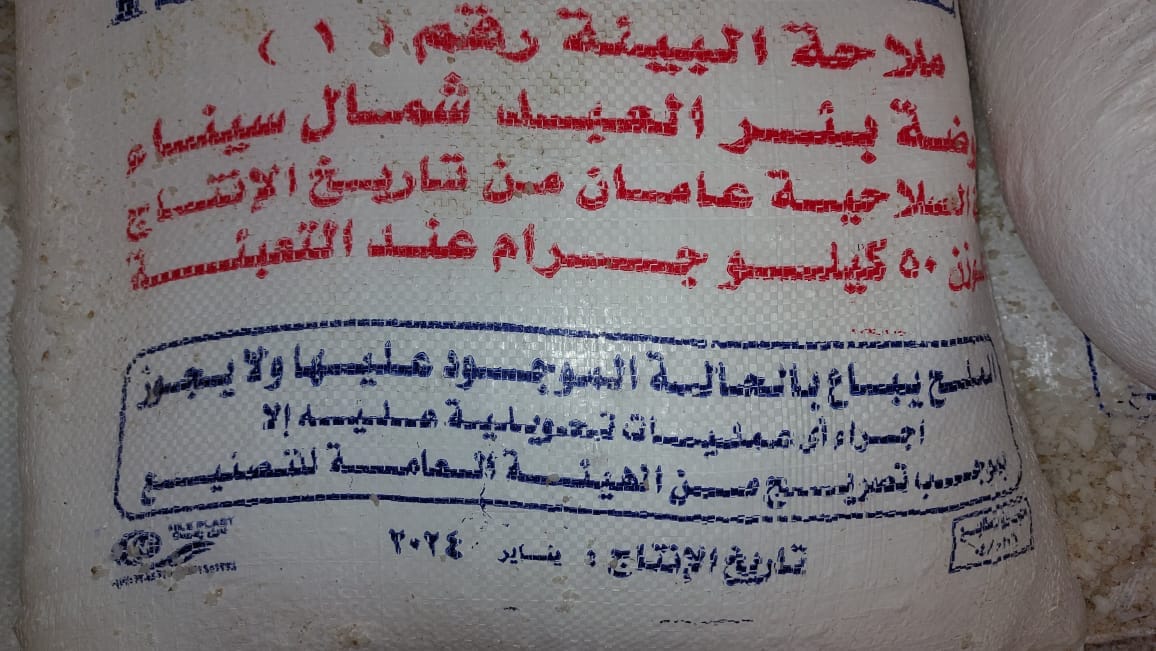 ملاحة البيئة رقم ( ١ )
بئر العبد شمال سيناء
السلاحية عامان من تاريخ الإنتاج
٥٠ كيلو جرام عند التعبئة
الملح يباع بالحالة الموجود عليها ولا يجوز
اجراء أي عمليات تحويلية عليه إلا
بموجب تصريح من الهيئة العامة للتصنيع
NILE PLAST
تاريخ الإنتاج : يناير / ٢٠٢٤